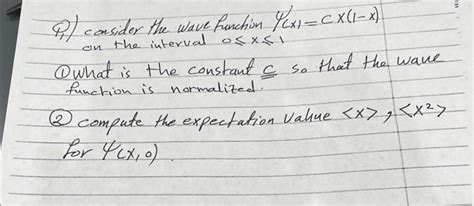 Q1) consider the wave function Ψ(x) = C x(1-x)
on the interval 0 ≤ x ≤ 1
① what is the constant C so that the wave
function is normalized.
② compute the expectation vahue <x> , <x²>
for Ψ(x,0)